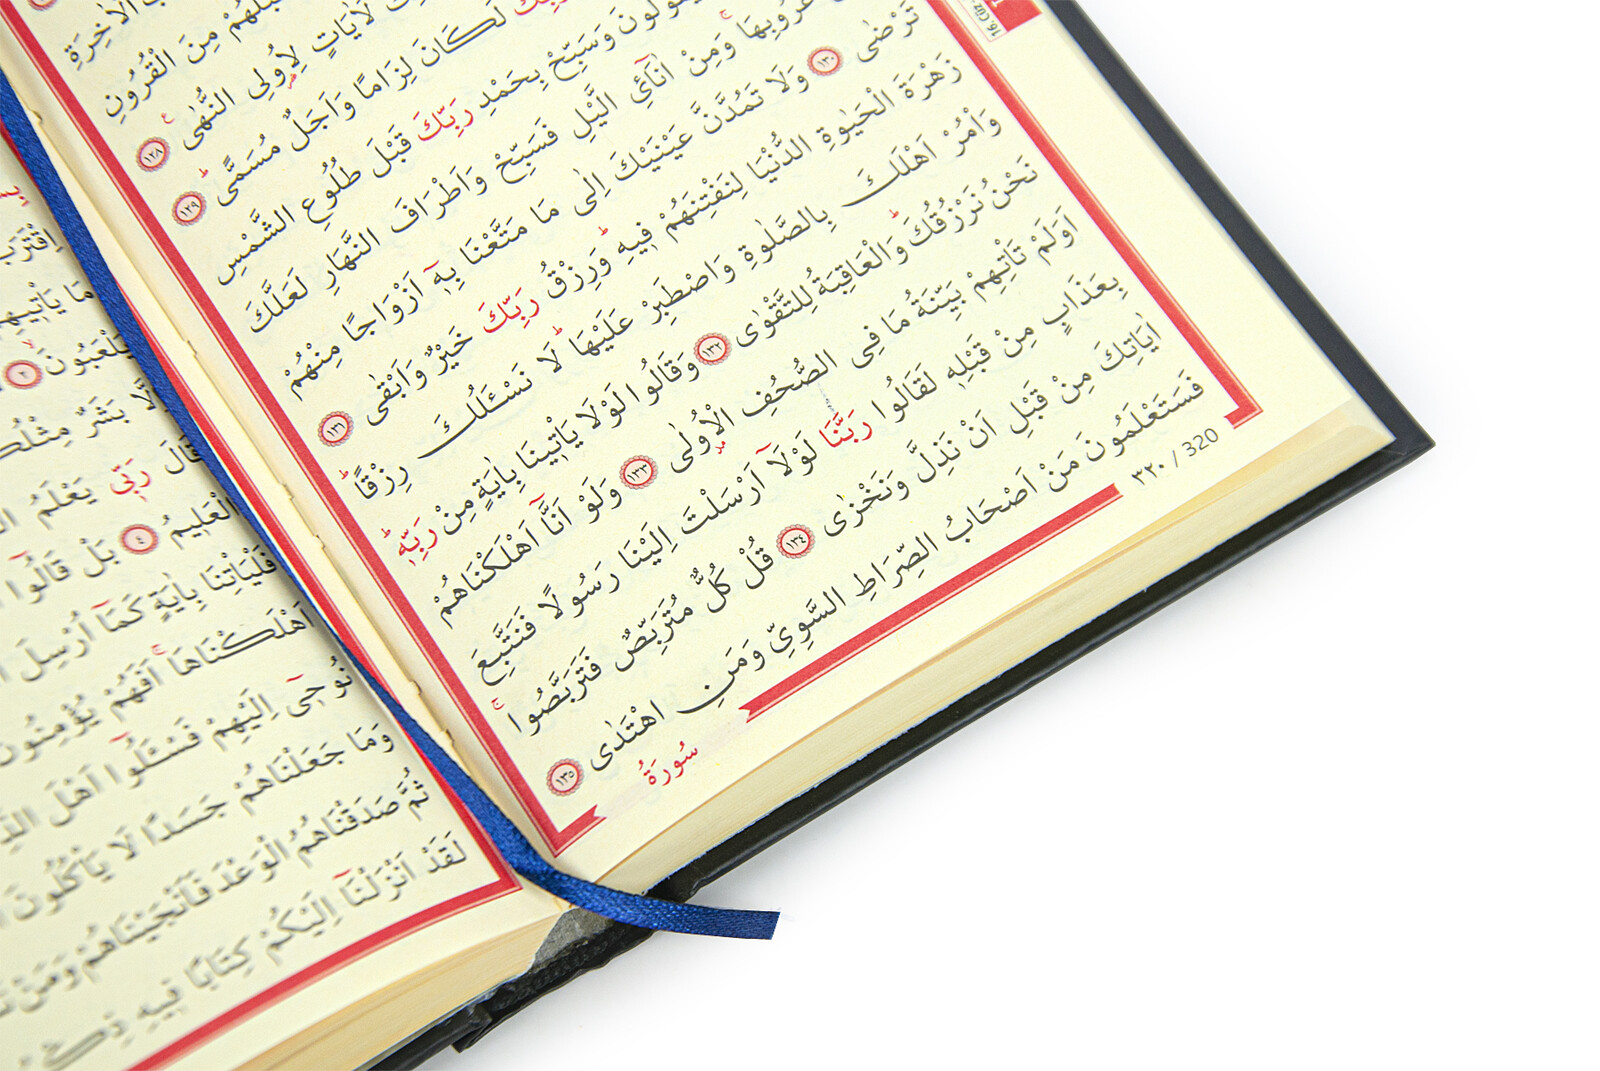 16. CÜZ
الْاٰخِرَةِ
مِنَ الْقُرُونِ
لَاٰيَاتٍ لِاُولِى النُّهٰى ﴿١٢٨﴾
رَبِّكَ لَكَانَ لِزَامًا وَاَجَلٌ مُسَمًّى ﴿١٢٩﴾
وَسَبِّحْ بِحَمْدِ رَبِّكَ قَبْلَ طُلُوعِ الشَّمْسِ
غُرُوبِهَا وَمِنْ اٰنَٓائِ الَّيْلِ فَسَبِّحْ وَاَطْرَافَ النَّهَارِ لَعَلَّكَ
تَرْضٰى ﴿١٣٠﴾ وَلَا تَمُدَّنَّ عَيْنَيْكَ اِلٰى مَا مَتَّعْنَا بِهٖٓ اَزْوَاجًا مِنْهُمْ
زَهْرَةَ الْحَيٰوةِ الدُّنْيَا لِنَفْتِنَهُمْ فٖيهِ وَرِزْقُ رَبِّكَ خَيْرٌ وَاَبْقٰى ﴿١٣١﴾
وَأْمُرْ اَهْلَكَ بِالصَّلٰوةِ وَاصْطَبِرْ عَلَيْهَا لَا نَسْـَٔلُكَ رِزْقًا
نَحْنُ نَرْزُقُكَ وَالْعَاقِبَةُ لِلتَّقْوٰى ﴿١٣٢﴾ وَقَالُوا لَوْلَا يَأْتٖينَا بِاٰيَةٍ مِنْ رَبِّهٖ
اَوَلَمْ تَأْتِهِمْ بَيِّنَةُ مَا فِى الصُّحُفِ الْاُولٰى ﴿١٣٣﴾ وَلَوْ اَنَّٓا اَهْلَكْنَاهُمْ
بِعَذَابٍ مِنْ قَبْلِهٖ لَقَالُوا رَبَّنَا لَوْلَٓا اَرْسَلْتَ اِلَيْنَا رَسُولًا فَنَتَّبِعَ
اٰيَاتِكَ مِنْ قَبْلِ اَنْ نَذِلَّ وَنَخْزٰى ﴿١٣٤﴾ قُلْ كُلٌّ مُتَرَبِّصٌ فَتَرَبَّصُوا
فَسَتَعْلَمُونَ مَنْ اَصْحَابُ الصِّرَاطِ السَّوِيِّ وَمَنِ اهْتَدٰى ﴿١٣٥﴾
سُورَةُ
٣٢٠ / 320
اِقْتَرَبَ
مَا يَأْتٖيهِمْ
يَلْعَبُونَ ﴿٢﴾
بَشَرٌ مِثْلُكُمْ
قَالَ رَبّٖى يَعْلَمُ
الْعَلٖيمُ ﴿٤﴾ بَلْ قَالُٓوا
فَلْيَأْتِنَا بِاٰيَةٍ كَمَٓا اُرْسِلَ
اَهْلَكْنَاهَا اَفَهُمْ يُؤْمِنُونَ
نُوحٖٓى اِلَيْهِمْ فَسْـَٔلُٓوا اَهْلَ
وَمَا جَعَلْنَاهُمْ جَسَدًا لَا يَأْكُلُونَ
ثُمَّ صَدَقْنَاهُمُ الْوَعْدَ فَاَنْجَيْنَاهُمْ وَمَنْ
لَقَدْ اَنْزَلْنَٓا اِلَيْكُمْ كِتَابًا فٖيهِ